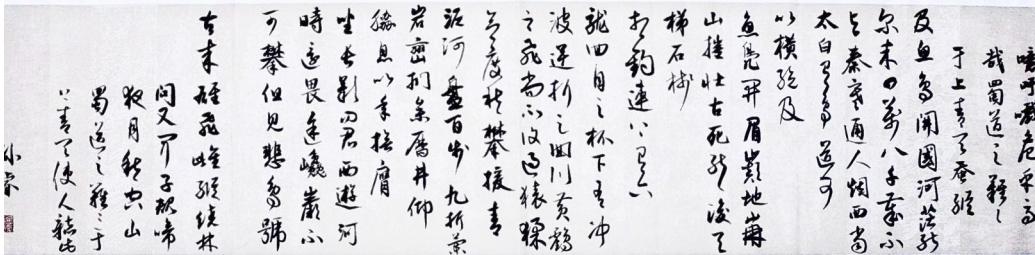 噫吁嚱危乎高
哉蜀道之難〻
于上青天蚕丛
及鱼凫開國何茫然
尔来四萬八千歲不
与秦塞通人烟西当
太白有鸟道可
以横絶及
鱼凫开眉巅地崩
山摧壮士死然後天
梯石棧
相鈎連上有六
龍回日之标下有冲
波逆折之回川黄鶴
之飛尚不得过猿猱
欲度愁攀援青
泥何盤百步九折萦
岩巒捫参歷井仰
脇息以手撫膺
坐長歎问君西遊何
時还畏途巉巖不
可攀但見悲鸟號
古木雄飛雌從繞林
间又闻子规啼
夜月愁空山
蜀道之難〻于
上青天使人聽此